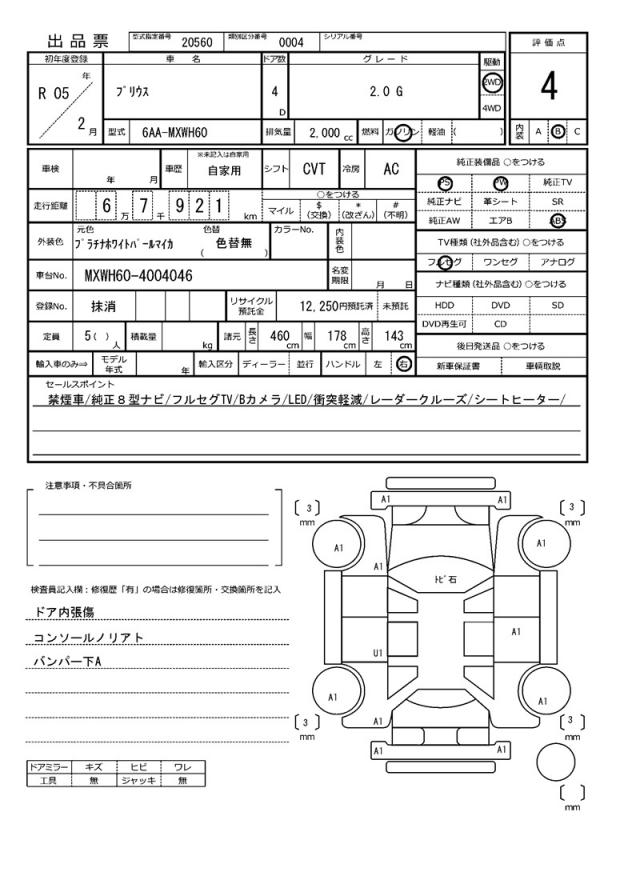 出品票
型式指定番号 20560 類別区分番号 0004 シリアル番号
評価点
初年度登録 車名 ドア数 グレード 駆動
R 05 年 2 月
ﾌﾟﾘｳｽ 4 D 2.0 G 2WD 4WD
4
型式 6AA-MXWH60 排気量 2,000 cc 燃料 ガソリン 軽油 ( )
内装 A B C
車検 年 月 車歴 ※未記入は自家用 自家用 シフト CVT 冷房 AC
走行距離 6 万 7 千 9 2 1 km
○をつける
マイル $ (交換) * (改ざん) # (不明)
外装色 元色 ﾌﾟﾗﾁﾅﾎﾜｲﾄﾊﾟｰﾙﾏｲｶ 色替 ( 色替無 ) カラーNo. 内装色
車台No. MXWH60-4004046 名変期限 月 日
登録No. 抹消 リサイクル預託金 12,250円預託済 未預託
定員 5 ( ) 人 積載量 kg 諸元 長さ 460 cm 幅 178 cm 高さ 143 cm
輸入車のみ⇒ モデル年式 年 輸入区分 ディーラー 並行 ハンドル 左 右
純正装備品 ○をつける
PS PW 純正TV
純正ナビ 革シート SR
純正AW エアB ABS
TV種類 (社外品含む) ○をつける
フルセグ ワンセグ アナログ
ナビ種類 (社外品含む) ○をつける
HDD DVD SD
DVD再生可 CD
後日発送品 ○をつける
新車保証書 車輌取説
セールスポイント
禁煙車/純正８型ナビ/フルセグTV/Bカメラ/LED/衝突軽減/レーダークルーズ/シートヒーター/
注意事項・不具合箇所
検査員記入欄：修復歴「有」の場合は修復箇所・交換箇所を記入
ドア内張傷
コンソールノリアト
バンパー下A
ドアミラー キズ ヒビ ワレ
工具 無 ジャッキ 無
A1 A1
3 mm 3 mm
A1 A1
A1
ﾄﾋﾞ石
A1
U1
A1 A1
A1
3 mm 3 mm
A1 A1
mm